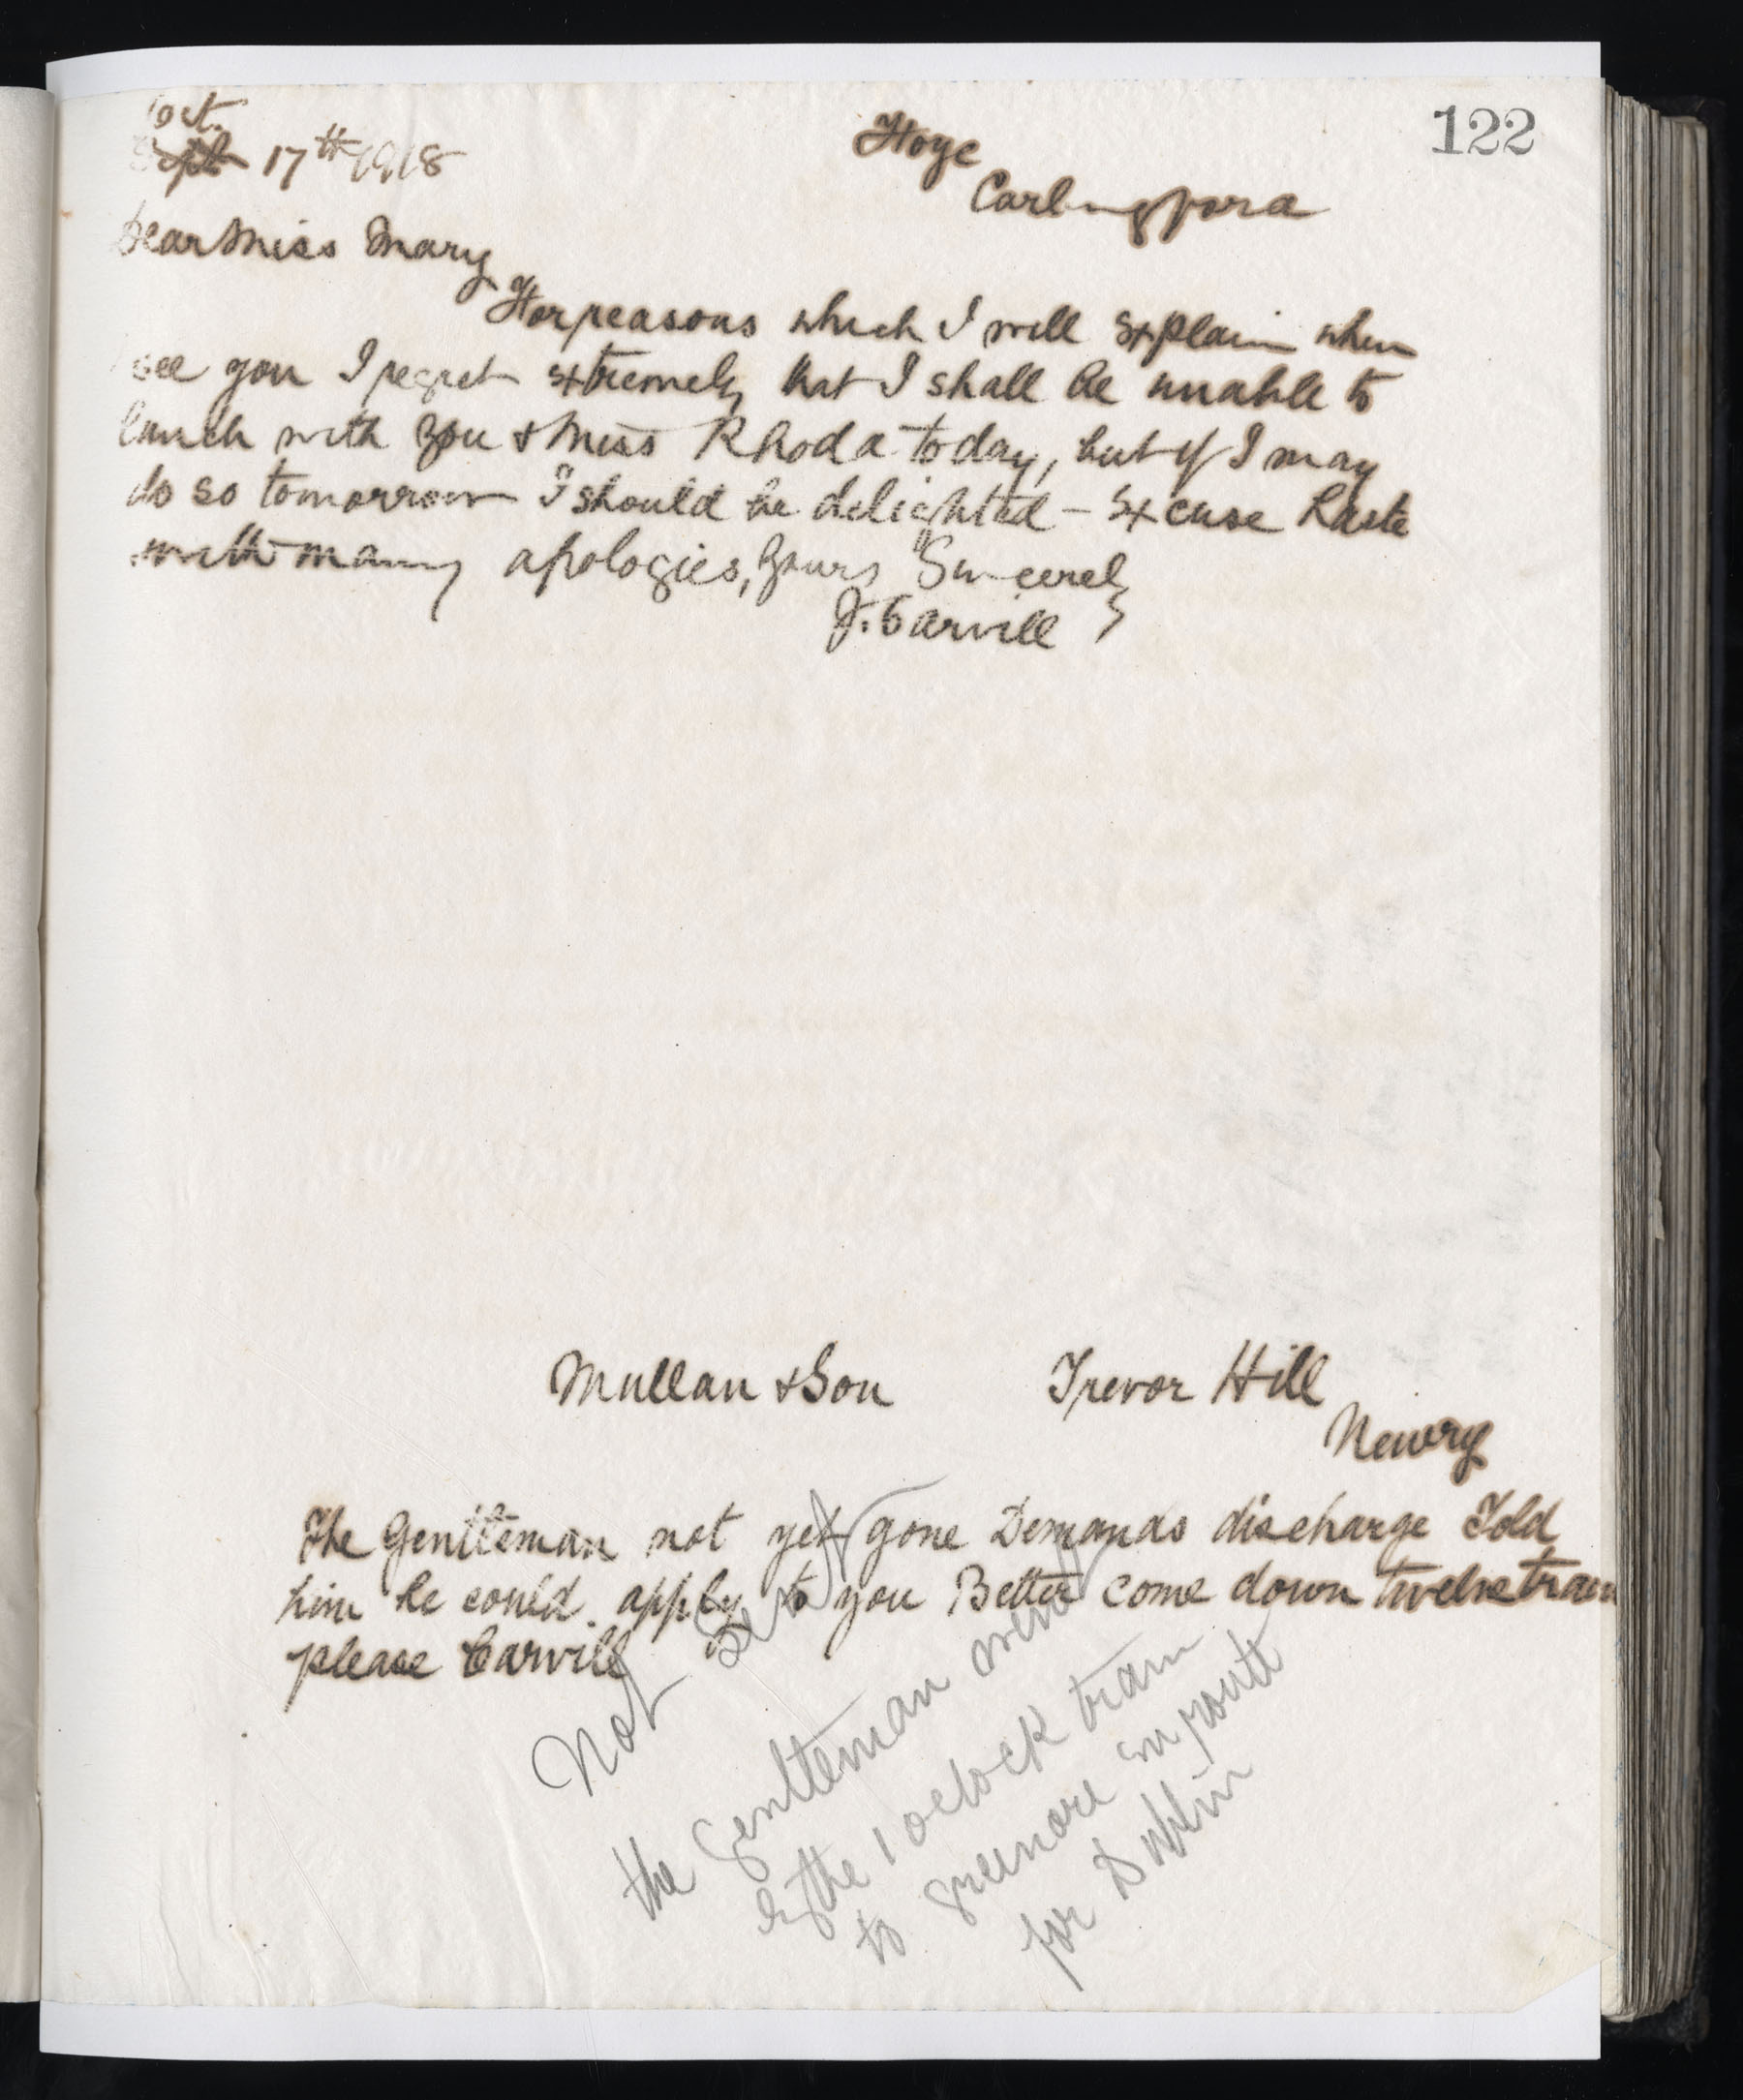 122
Oct.
Sept 17th 1918
Carlingford
Dear Miss Mary
For reasons which I will explain when
see you I regret extremely that I shall be unable to
lunch with you & Miss Rhoda today, but if I may
do so tomorrow I should be delighted - Excuse haste
with many apologies, Yours Sincerely
J. Carvill
Mullan & Son Trevor Hill
Newry
The Gentleman not yet gone Demands discharge Told
him he could apply to you Better come down twelve train
please Carvill
Not sent
the Gentleman went
by the 1 oclock train
to greenore en route
for Dublin